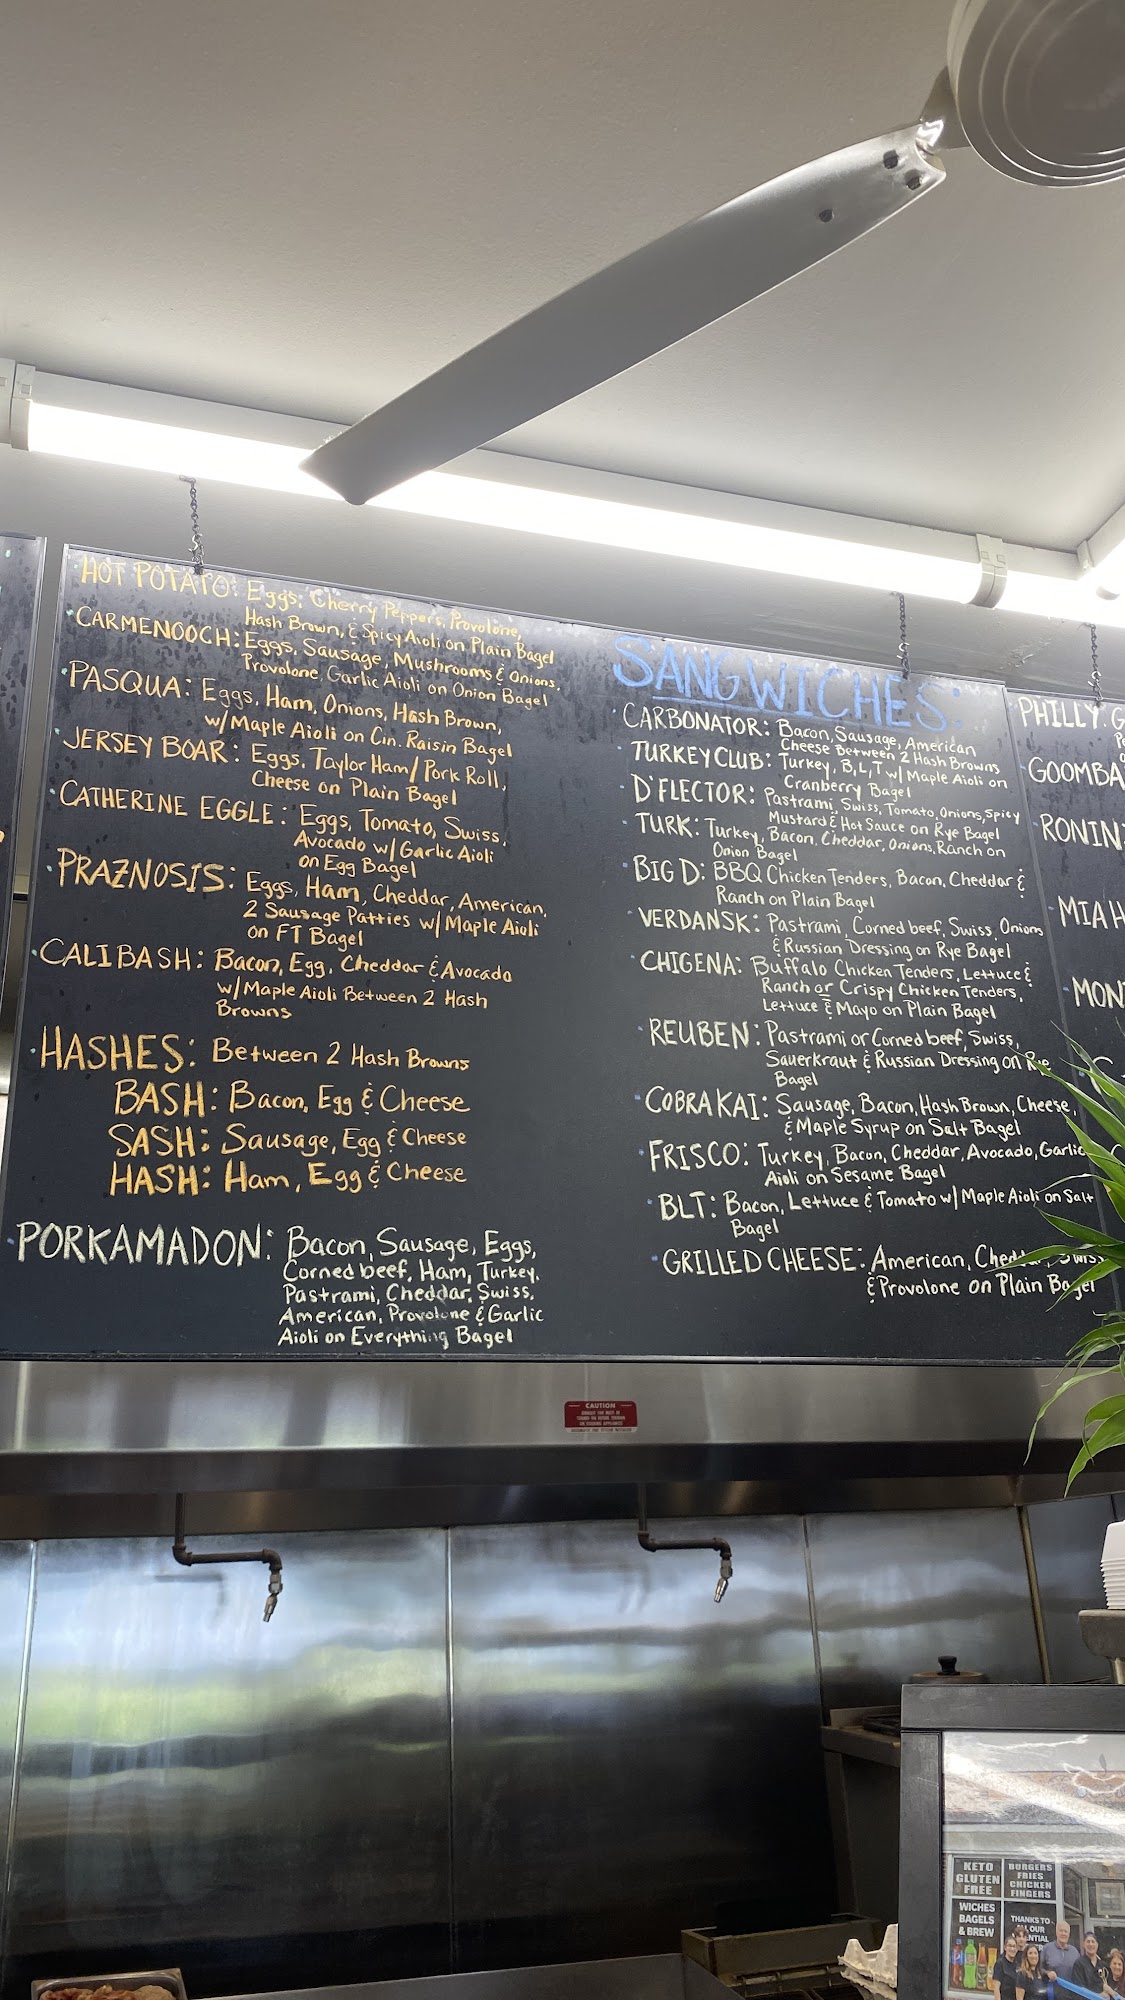 HOT POTATO: Eggs, Cherry Peppers, Provolone,
Hash Brown, & Spicy Aioli on Plain Bagel
CARMENOOCH: Eggs, Sausage, Mushrooms & Onions,
Provolone, Garlic Aioli on Onion Bagel
PASQUA: Eggs, Ham, Onions, Hash Brown,
w/ Maple Aioli on Cin. Raisin Bagel
JERSEY BOAR: Eggs, Taylor Ham/Pork Roll,
Cheese on Plain Bagel
CATHERINE EGGLE: Eggs, Tomato, Swiss,
Avocado w/ Garlic Aioli
on Egg Bagel
PRAZNOSIS: Eggs, Ham, Cheddar, American,
2 Sausage Patties w/ Maple Aioli
on FT Bagel
CALIBASH: Bacon, Egg, Cheddar & Avocado
w/ Maple Aioli Between 2 Hash
Browns
HASHES: Between 2 Hash Browns
BASH: Bacon, Egg & Cheese
SASH: Sausage, Egg & Cheese
HASH: Ham, Egg & Cheese
PORKAMADON: Bacon, Sausage, Eggs,
Corned beef, Ham, Turkey,
Pastrami, Cheddar, Swiss,
American, Provolone & Garlic
Aioli on Everything Bagel
SANGWICHES:
CARBONATOR: Bacon, Sausage, American
Cheese Between 2 Hash Browns
TURKEY CLUB: Turkey, B, L, T w/ Maple Aioli on
Cranberry Bagel
D'FLECTOR: Pastrami, Swiss, Tomato, Onions, Spicy
Mustard & Hot Sauce on Rye Bagel
TURK: Turkey, Bacon, Cheddar, Onions, Ranch on
Onion Bagel
BIG D: BBQ Chicken Tenders, Bacon, Cheddar &
Ranch on Plain Bagel
VERDANSK: Pastrami, Corned beef, Swiss, Onions
& Russian Dressing on Rye Bagel
CHIGENA: Buffalo Chicken Tenders, Lettuce &
Ranch or Crispy Chicken Tenders,
Lettuce & Mayo on Plain Bagel
REUBEN: Pastrami or Corned beef, Swiss,
Sauerkraut & Russian Dressing on Rye
Bagel
COBRA KAI: Sausage, Bacon, Hash Brown, Cheese,
& Maple Syrup on Salt Bagel
FRISCO: Turkey, Bacon, Cheddar, Avocado, Garlic
Aioli on Sesame Bagel
BLT: Bacon, Lettuce & Tomato w/ Maple Aioli on Salt
Bagel
GRILLED CHEESE: American, Cheddar, Swiss
& Provolone on Plain Bagel
PHILLY:
GOOMBA
RONIN:
MIA
MON
CAUTION
KETO
GLUTEN
FREE
BURGERS
FRIES
CHICKEN
FINGERS
WICHES
BAGELS
& BREW
THANKS TO
OUR